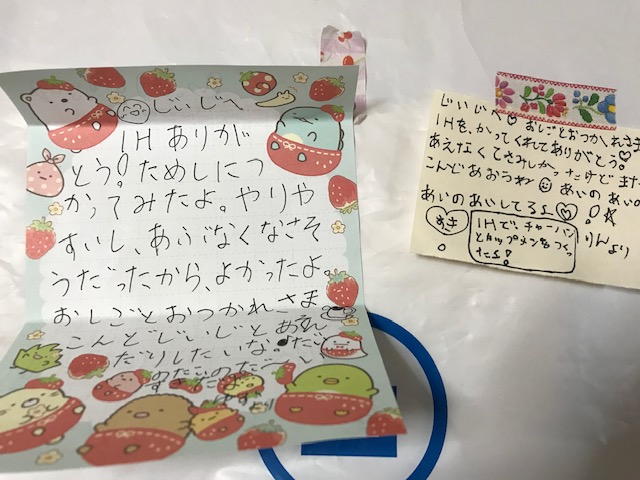 じいじへ
IHありが
とう!ためしにつ
かってみたよ。やりや
すいし、あぶなくなさそ
うだったから、よかったよ。
おしごとおつかれさま
こんどじいじとあえ
だりしたいな。
じいじへ おしごとおつかれさま
IHを、かってくれてありがとう♡
あえなくてさみしかったけどまた
こんどあおうね あいのあいの
あいのあいしてるよ♡!
IHで、チャーハン
とカップメンをつくっ
たよ!
りんより